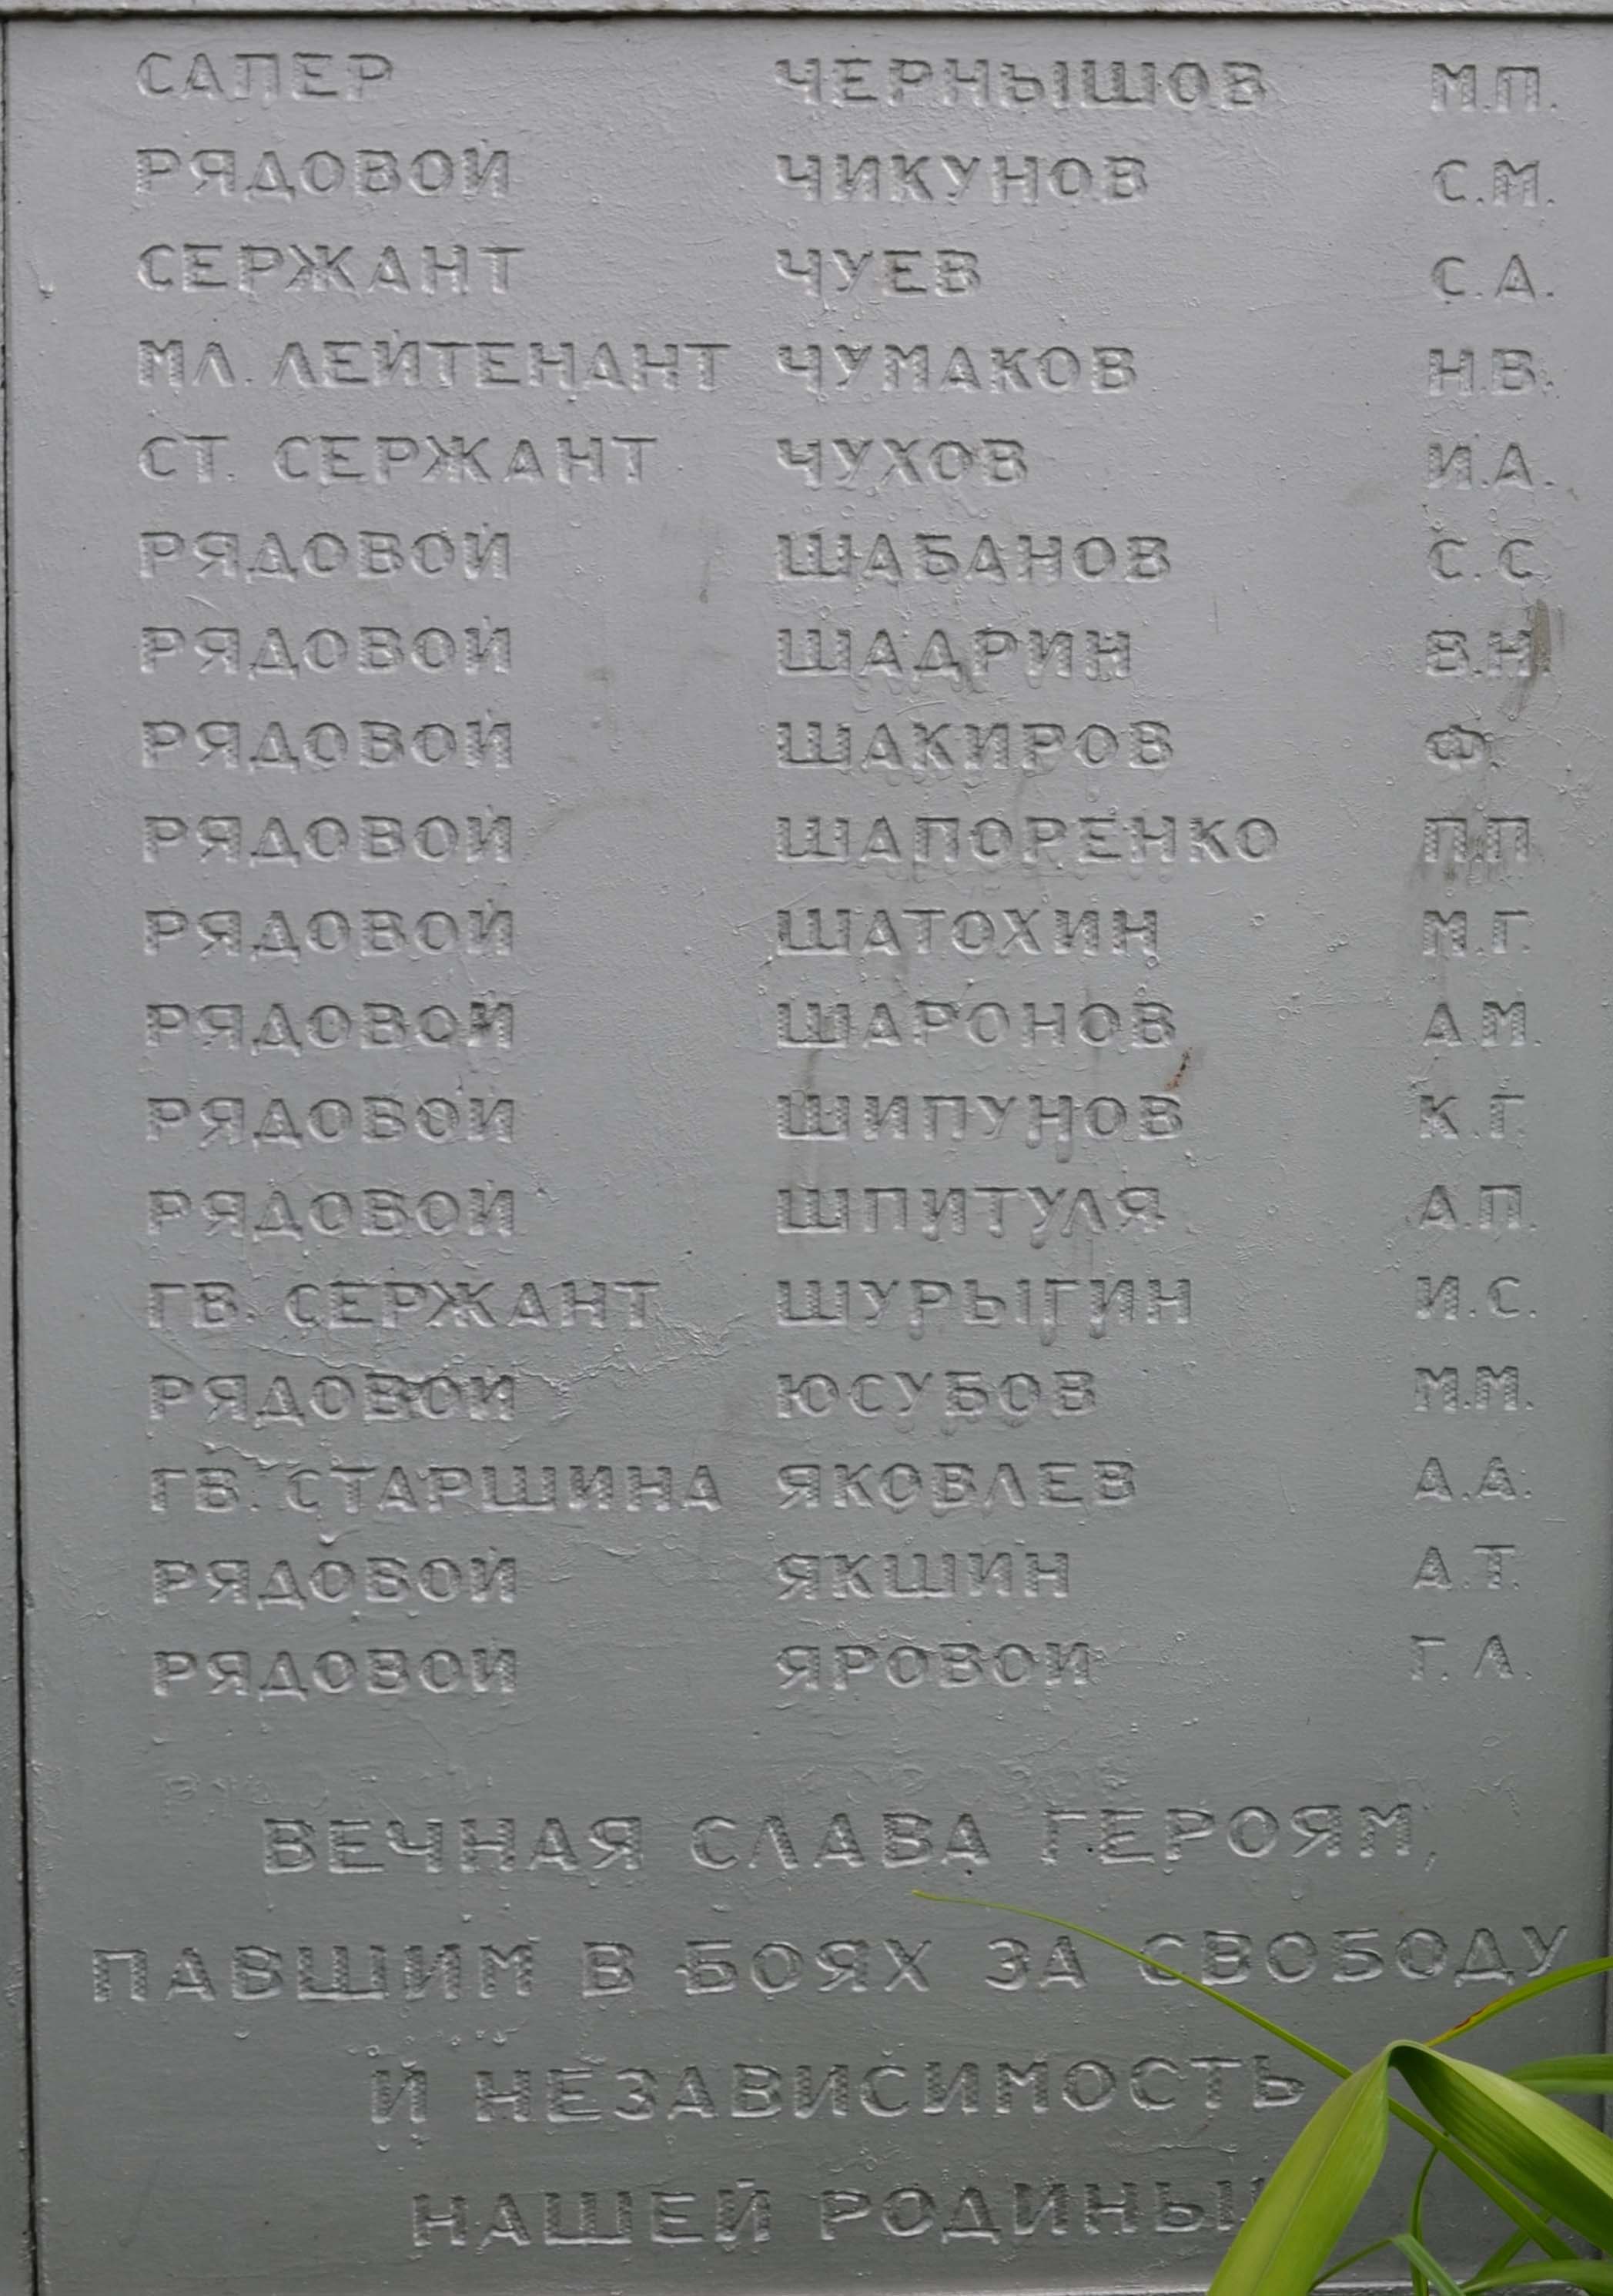 САПЕР ЧЕРНЫШОВ М.П.
РЯДОВОЙ ЧИКУНОВ С.М.
СЕРЖАНТ ЧУЕВ С.А.
МЛ. ЛЕЙТЕНАНТ ЧУМАКОВ Н.В.
СТ. СЕРЖАНТ ЧУХОВ И.А.
РЯДОВОЙ ШАБАНОВ С.С
РЯДОВОЙ ШАДРИН В.Н.
РЯДОВОЙ ШАКИРОВ Ф.
РЯДОВОЙ ШАПОРЕНКО П.П
РЯДОВОЙ ШАТОХИН М.Г.
РЯДОВОЙ ШАРОНОВ А.М.
РЯДОВОЙ ШИПУНОВ К.Г.
РЯДОВОЙ ШПИТУЛЯ А.П.
ГВ. СЕРЖАНТ ШУРЫГИН И.С.
РЯДОВОЙ ЮСУБОВ М.М.
ГВ. СТАРШИНА ЯКОВЛЕВ А.А.
РЯДОВОЙ ЯКШИН А.Т.
РЯДОВОЙ ЯРОВОЙ Г.Л.
ВЕЧНАЯ СЛАВА ГЕРОЯМ,
ПАВШИМ В БОЯХ ЗА СВОБОДУ
И НЕЗАВИСИМОСТЬ
НАШЕЙ РОДИНЫ!